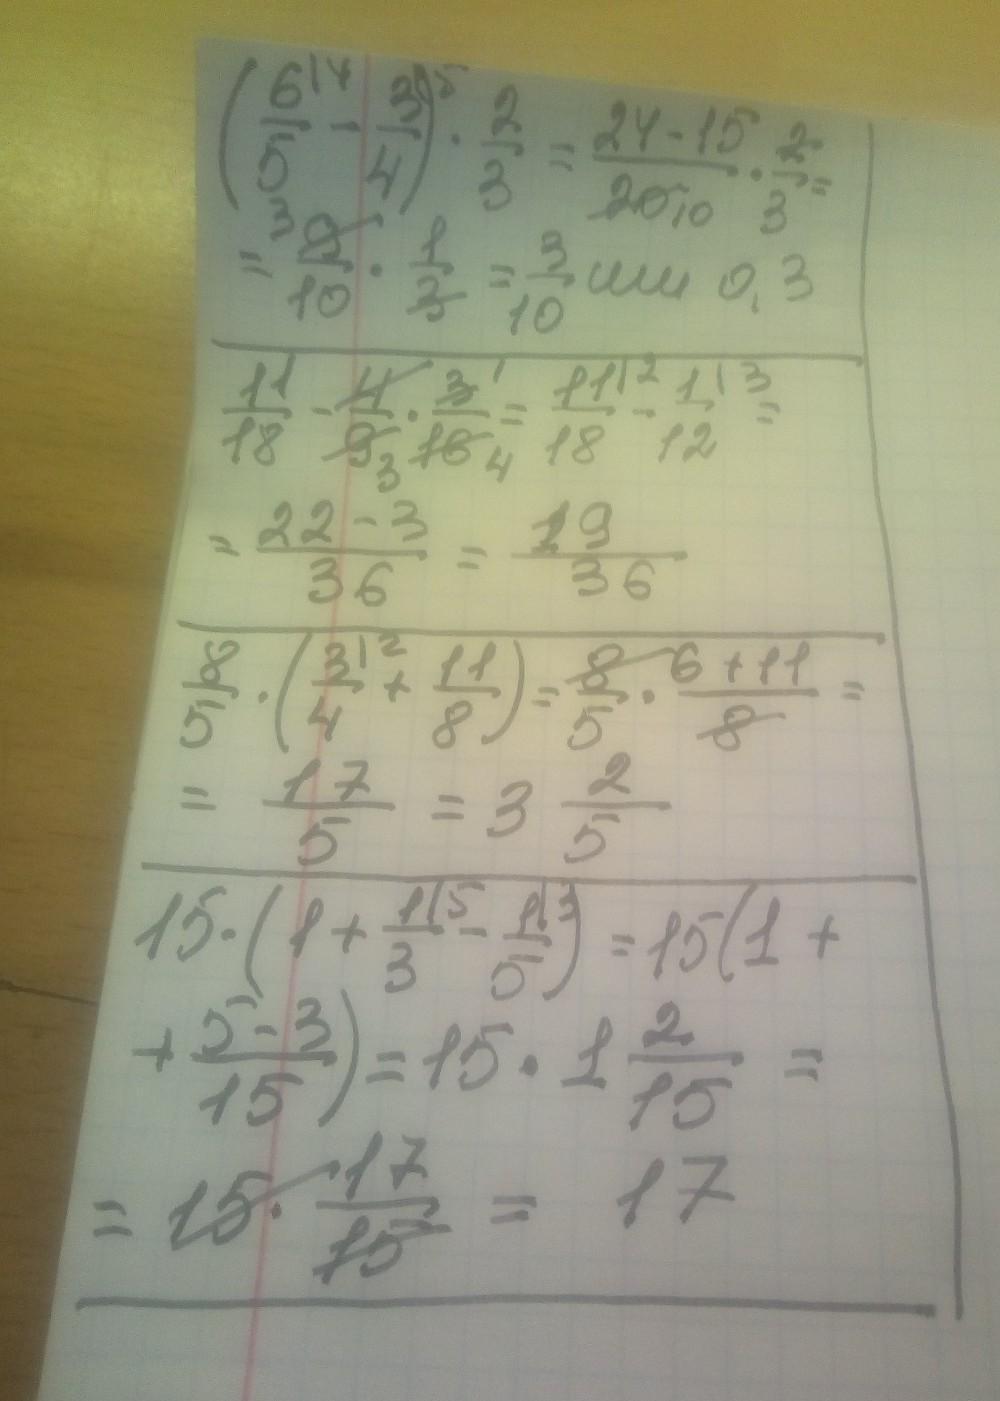 (6/5 |4 - 3/4 |5) · 2/3 = (24-15)/20 10 · 2/3 =
= 3 9/10 · 1/3 = 3/10 или 0,3
11/18 - 4/9 3 · 3 1/16 4 = 11/18 |2 - 1/12 |3 =
= (22-3)/36 = 19/36
8/5 · (3/4 |2 + 11/8) = 8/5 · (6+11)/8 =
= 17/5 = 3 2/5
15 · (1 + 1/3 |5 - 1/5 |3) = 15(1 +
+ (5-3)/15) = 15 · 1 2/15 =
= 15 · 17/15 = 17